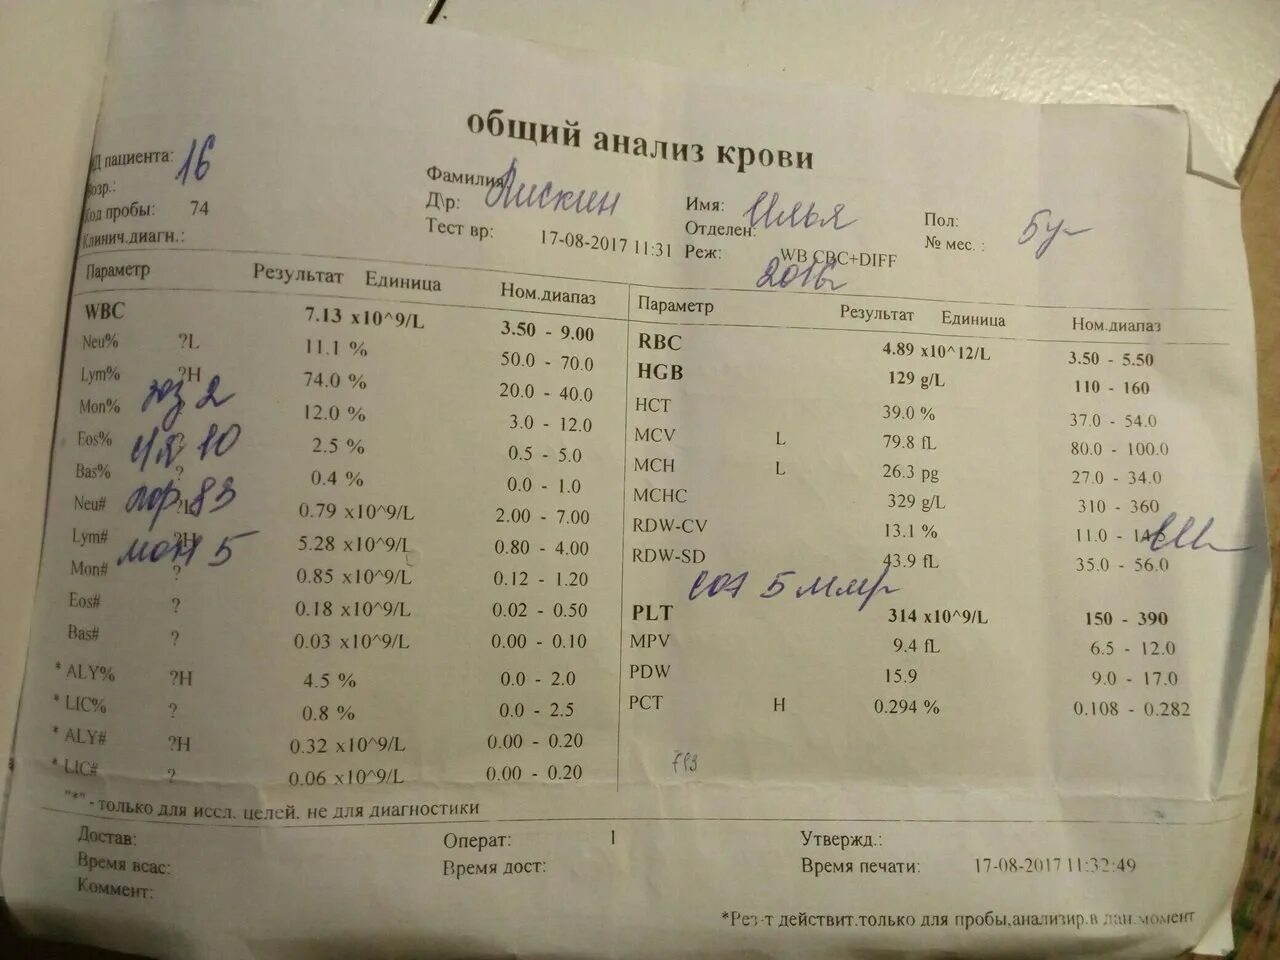 общий анализ крови
ИД пациента: 16
Возр.:
Код пробы: 74
Клинич.диагн.:
Фамилия: Лискин
Д\р:
Тест вр: 17-08-2017 11:31
Имя: Илья
Отделен:
Реж: WB CBC+DIFF
2016г
Пол:
№ мес. :
Параметр Результат Единица Ном.диапаз
WBC 7.13 x10^9/L 3.50 - 9.00
Neu% ?L 11.1 % 50.0 - 70.0
Lym% ?H 74.0 % 20.0 - 40.0
Mon% 12.0 % 3.0 - 12.0
Eos% 2.5 % 0.5 - 5.0
Bas% ? 0.4 % 0.0 - 1.0
Neu# ?L 0.79 x10^9/L 2.00 - 7.00
Lym# ?H 5.28 x10^9/L 0.80 - 4.00
Mon# ? 0.85 x10^9/L 0.12 - 1.20
Eos# ? 0.18 x10^9/L 0.02 - 0.50
Bas# ? 0.03 x10^9/L 0.00 - 0.10
* ALY% ?H 4.5 % 0.0 - 2.0
* LIC% ? 0.8 % 0.0 - 2.5
* ALY# ?H 0.32 x10^9/L 0.00 - 0.20
* LIC# ? 0.06 x10^9/L 0.00 - 0.20
эоз 2
с/я 10
лф 83
мон 5
Параметр Результат Единица Ном.диапаз
RBC 4.89 x10^12/L 3.50 - 5.50
HGB 129 g/L 110 - 160
HCT 39.0 % 37.0 - 54.0
MCV L 79.8 fL 80.0 - 100.0
MCH L 26.3 pg 27.0 - 34.0
MCHC 329 g/L 310 - 360
RDW-CV 13.1 % 11.0 -
RDW-SD 43.9 fL 35.0 - 56.0
соэ 5 мм/
PLT 314 x10^9/L 150 - 390
MPV 9.4 fL 6.5 - 12.0
PDW 15.9 9.0 - 17.0
PCT H 0.294 % 0.108 - 0.282
"*" - только для иссл. целей. не для диагностики
Достав: Операт: 1 Утвержд.:
Время всас: Время дост: Время печати: 17-08-2017 11:32:49
Коммент:
*Рез-т действит.только для пробы,анализир.в дан.момент